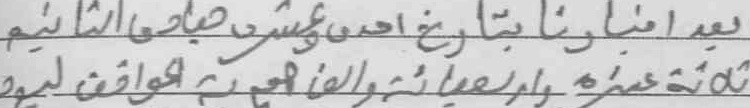 بعد اخبارنا بتاريخ احدى وعشرى جمادى الثانيه
ثلاثة عشره واربعمائة والف هجرية الموافق ليوم